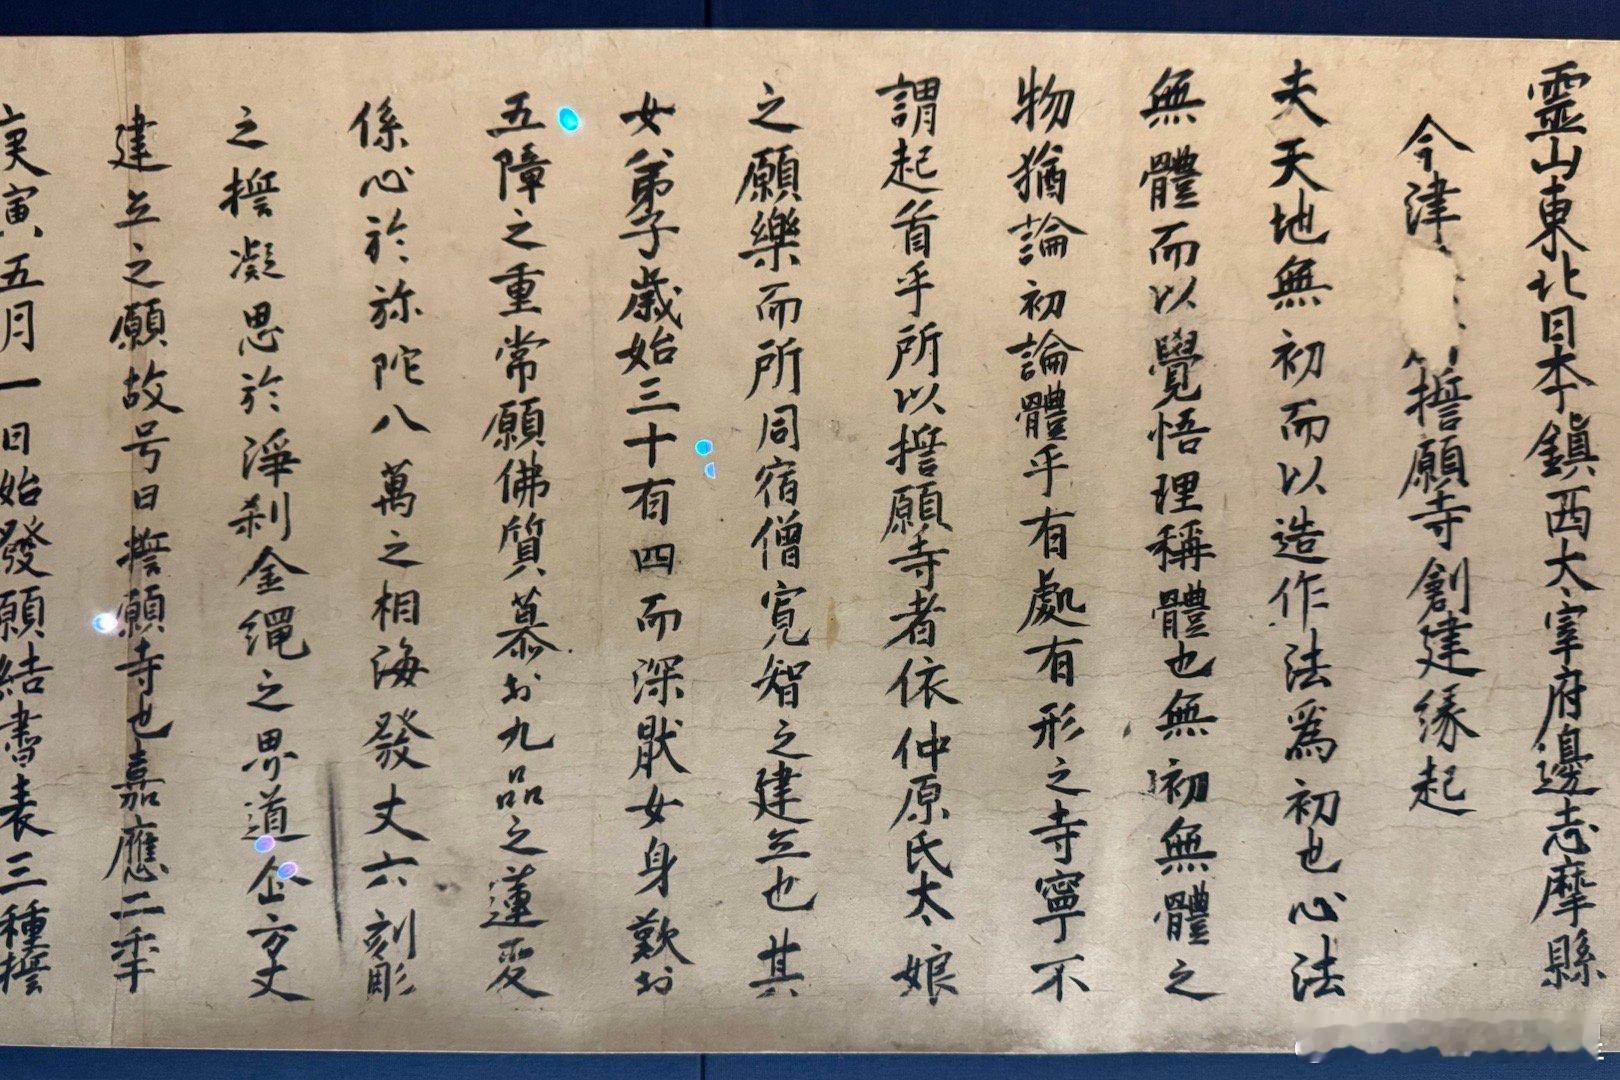 霊山東北日本鎮西大宰府邊志摩縣
今津 誓願寺創建縁起
夫天地無初而以造作法為初也心法
無體而以覺悟理稱體也無初無體之
物猶論初論體乎有處有形之寺寧不
謂起首乎所以誓願寺者依仲原氏太娘
之願樂而所同宿僧寛智之建立也其
女弟子歳始三十有四而深猒女身歎於
五障之重常願佛質慕於九品之蓮爰
係心於弥陀八萬之相海發丈六刻彫
之誓凝思於浄刹金縄之界道企方丈
建立之願故号曰誓願寺也嘉應二季
庚寅五月一日始發願結書表三種誓